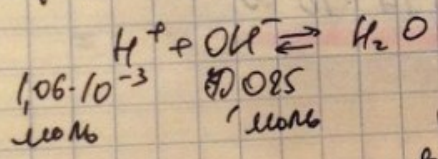 H⁺ + OH⁻ ⇌ H₂O
1,06·10⁻³ 0,025
моль моль